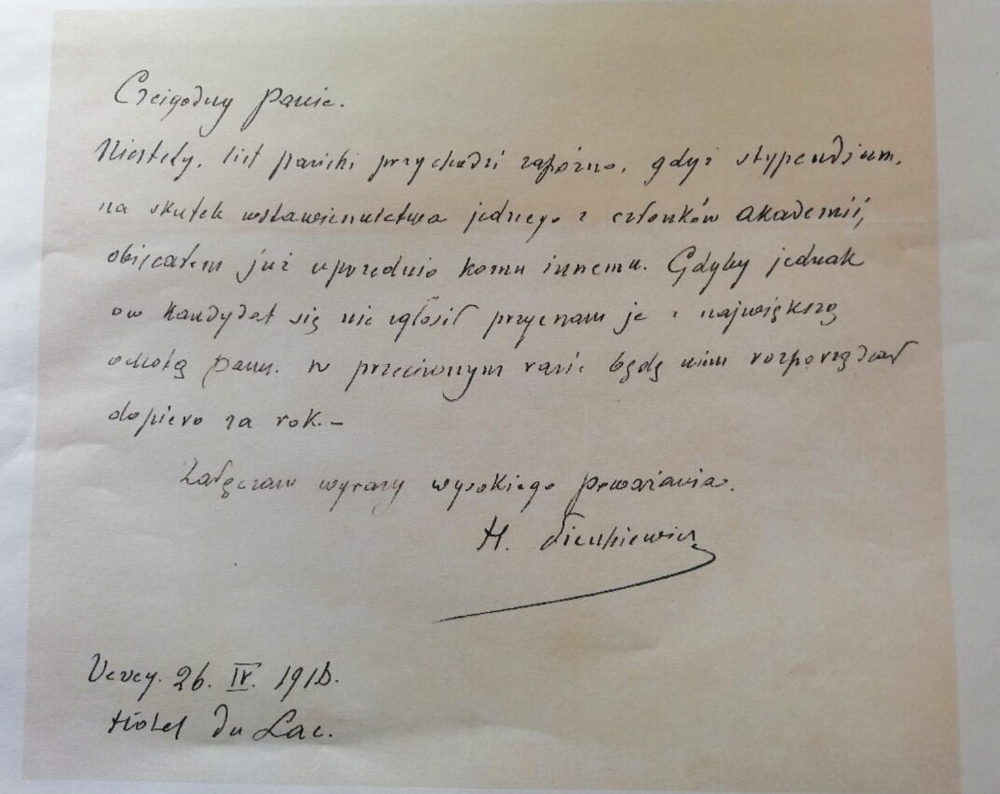 Czcigodny Panie.
Niestety, list pański przychodzi zapóźno, gdyż stypendium,
na skutek wstawiennictwa jednego z członków Akademii,
obiecałem już uprzednio komu innemu. Gdyby jednak
ów kandydat się nie zgłosił przyznam je z największą
ochotą Panu. W przeciwnym razie będę nim rozporządzał
dopiero za rok.–
Załączam wyrazy wysokiego poważania.
H. Sienkiewicz
Vevey. 26. IV.
Hôtel du Lac.